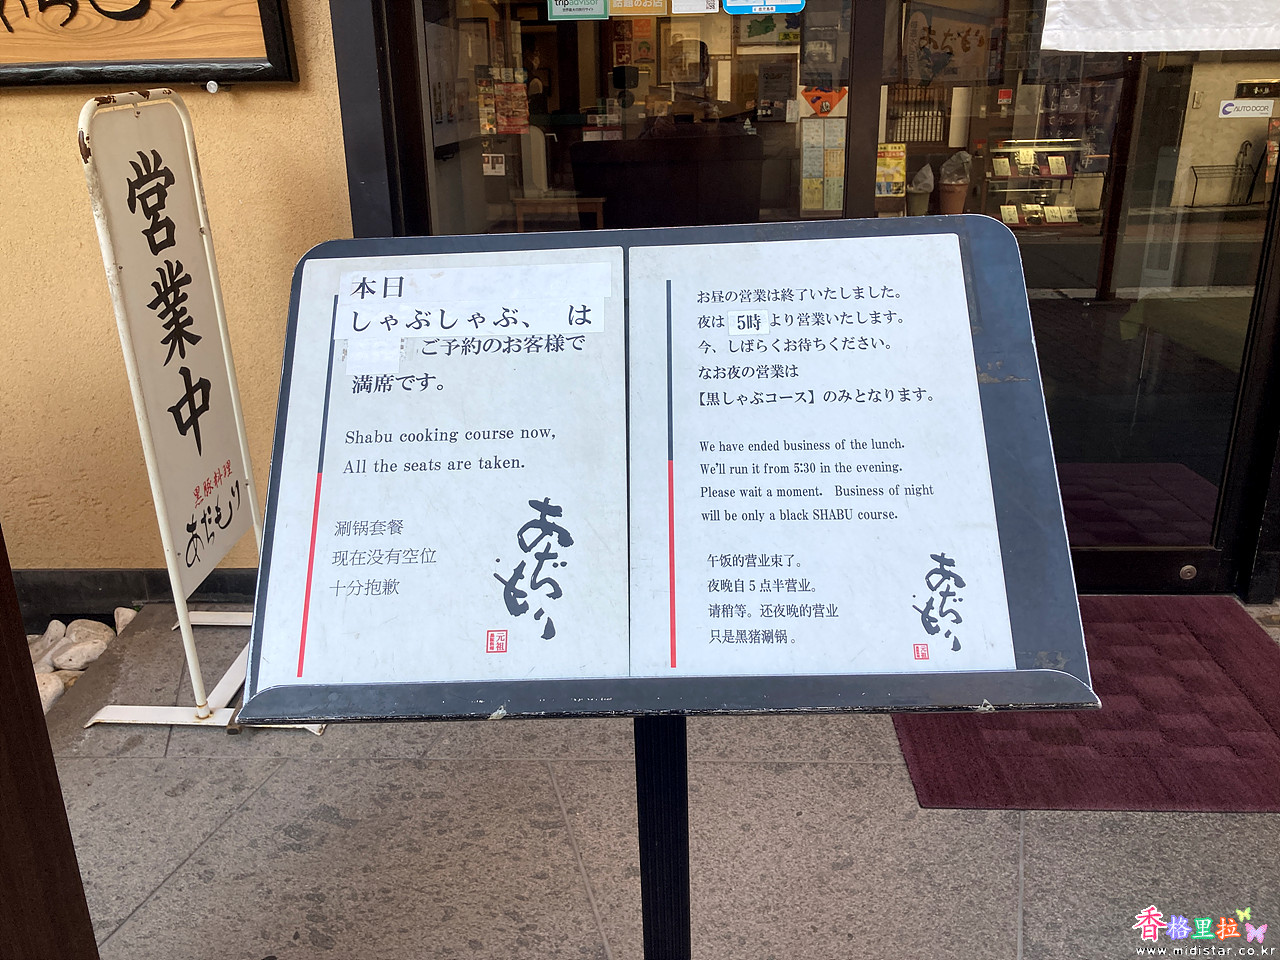 営業中
黒豚料理
あぢもり
本日
しゃぶしゃぶ、 は
ご予約のお客様で
満席です。
Shabu cooking course now,
All the seats are taken.
涮锅套餐
现在没有空位
十分抱歉
あぢもり
元祖
お昼の営業は終了いたしました。
夜は 5時 より営業いたします。
今、しばらくお待ちください。
なお夜の営業は
【黒しゃぶコース】のみとなります。
We have ended business of the lunch.
We'll run it from 5:30 in the evening.
Please wait a moment. Business of night
will be only a black SHABU course.
午饭的营业束了。
夜晚自5点半营业。
请稍等。还夜晚的营业
只是黑猪涮锅。
あぢもり
元祖
tripadvisor
話題のお店
AUTO DOOR
香格里拉
www.midistar.co.kr